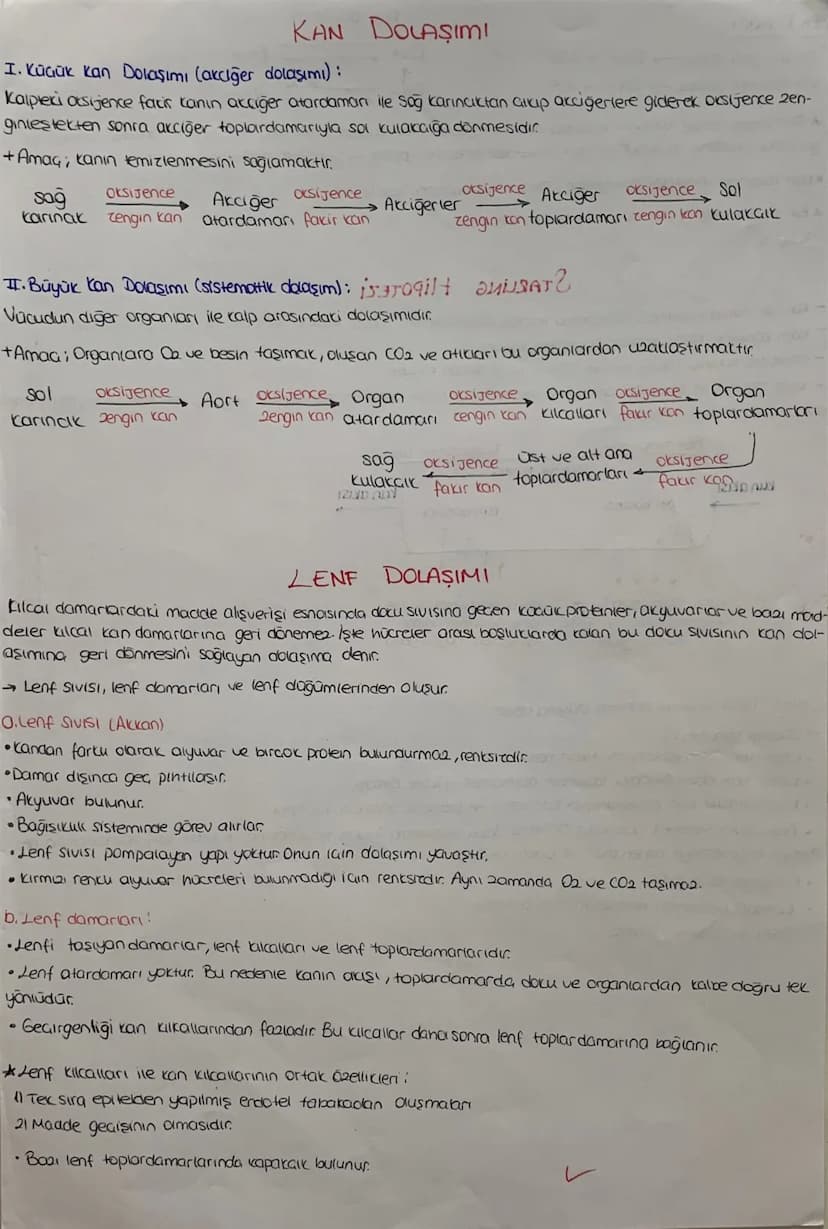 KAN DOLAŞIMI
I. Küçük Kan Dolaşımı (akciğer dolaşımı):
Kalpteki oksijence fakir kanın akciğer atardamarı ile sağ karıncıktan çıkıp akciğerlere giderek oksijence zen-
ginleştekten sonra akciğer toplardamarıyla sol kulakcığa dönmesidir.
+Amaç; kanın temizlenmesini sağlamaktır.
sağ karıncık oksijence zengin kan Akciğer atardamarı oksijence fakir kan Akciğerler oksijence zengin kan Akciğer toplardamarı oksijence zengin kan Sol kulakcık
II. Büyük Kan Dolaşımı (sistematik dolaşım):
Vücudun diğer organları ile kalp arasındaki dolaşımıdır.
+Amaç; Organlara O2 ve besin taşımak, oluşan CO2 ve atıkları bu organlardan uzaklaştırmaktır.
sol karıncık oksijence zengin kan Aort oksijence zengin kan Organ atardamarı oksijence zengin kan Organ kılcalları oksijence fakir kan Organ toplardamarları
sağ kulakcık oksijence fakir kan Üst ve alt ana toplardamarları oksijence fakir kan
LENF DOLAŞIMI
Kılcal damarlardaki madde alışverişi esnasında doku sıvısına geçen küçük proteinler, akyuvarlar ve bazı mad-
deler kılcal kan damarlarına geri dönemez. İşte hücreler arası boşluklarda kalan bu doku sıvısının kan dol-
aşımına geri dönmesini sağlayan dolaşıma denir.
→ Lenf sıvısı, lenf damarları ve lenf düğümlerinden oluşur.
a. Lenf sıvısı (Akkan)
• Kandan farklı olarak alyuvar ve birçok protein bulundurmaz, renksizdir.
• Damar dışınca geç pıhtılaşır.
• Akyuvar bulunur.
• Bağışıklık sisteminde görev alırlar.
• Lenf sıvısı pompalayan yapı yoktur. Onun için dolaşımı yavaştır.
• Kırmızı renkli alyuvar hücreleri bulunmadığı için renksizdir. Aynı zamanda O2 ve CO2 taşımaz.
b. Lenf damarları:
• Lenfi taşıyan damarlar, lenf kılcalları ve lenf toplardamarlarıdır.
• Lenf atardamarı yoktur. Bu nedenle kanın akışı, toplardamarda, doku ve organlardan kalbe doğru tek
yönlüdür.
• Geçirgenliği kan kılkallarından fazladır. Bu kılcallar daha sonra lenf toplardamarına bağlanır.
★ Lenf kılcalları ile kan kılcallarının ortak özellikleri:
1) Tek sıra epitelden yapılmış endotel tabakadan oluşmaları
2) Madde geçişinin olmasıdır.
• Bazı lenf toplardamarlarında kapakçık bulunur.